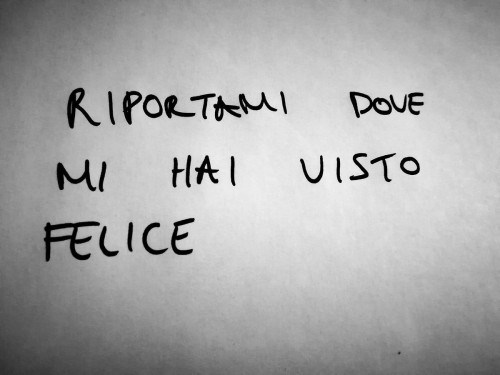 RIPORTAMI DOVE
MI HAI VISTO
FELICE